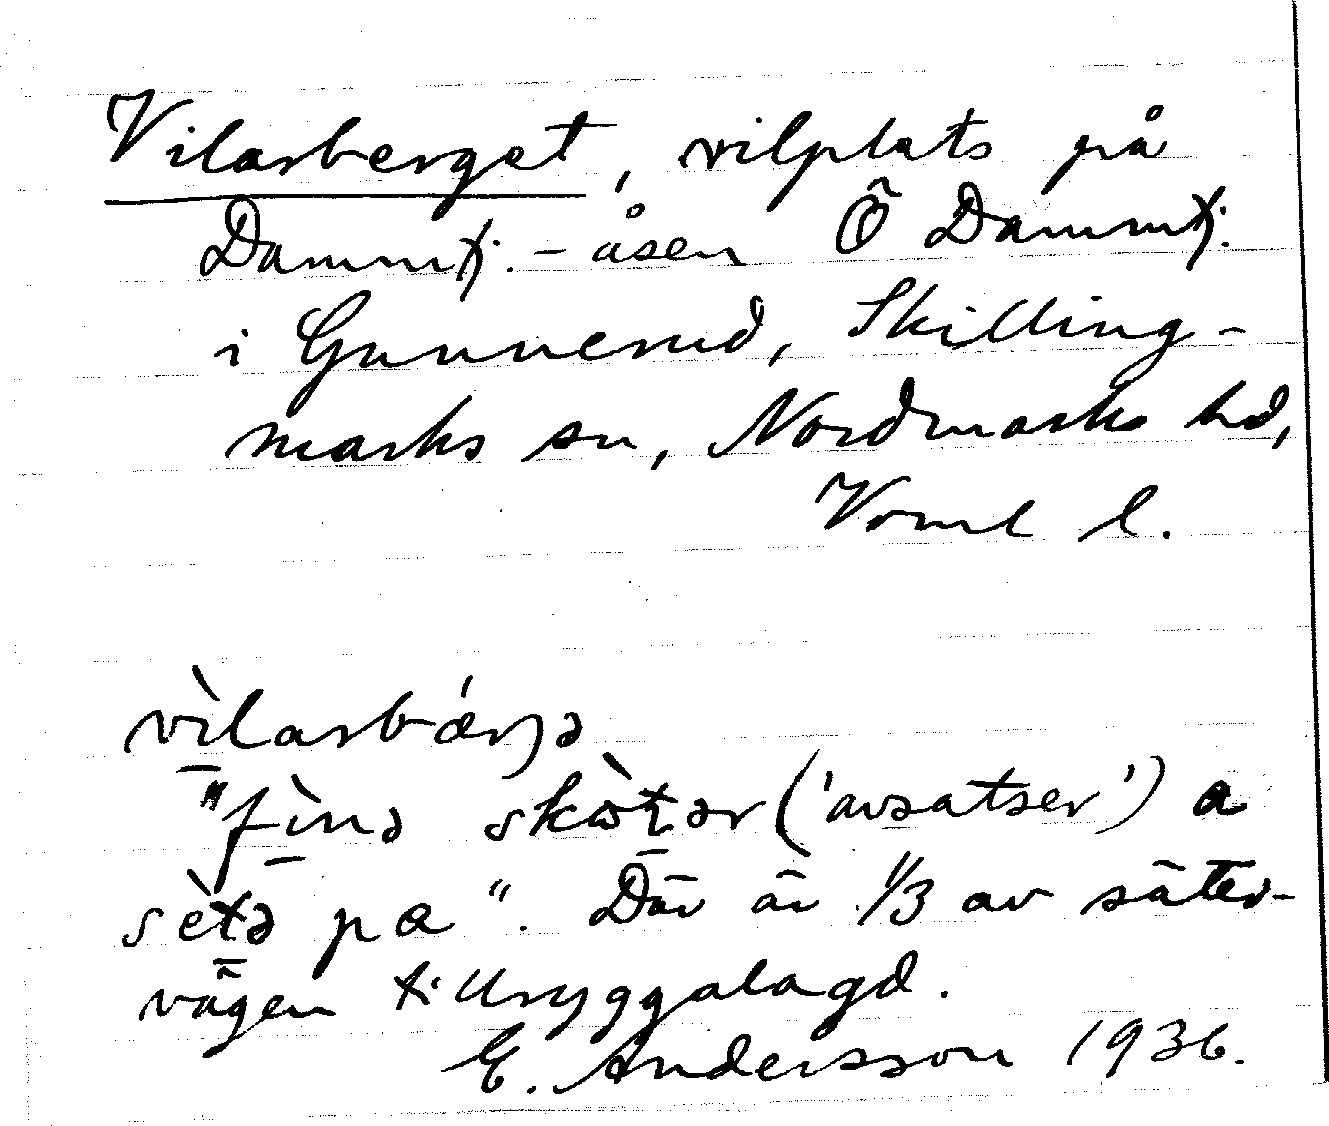 Vilarberget, vilplats på
Dammtj.-åsen Ö Dammtj.
i Gunnerud, Skilling-
marks sn, Nordmarks hd,
Vrml l.
vìlarbǽrjə
"fìnə skòtər ('avsatser') a
sètə pa". Där är 1/3 av säter-
vägen tillryggalagd.
E. Andersson 1936.